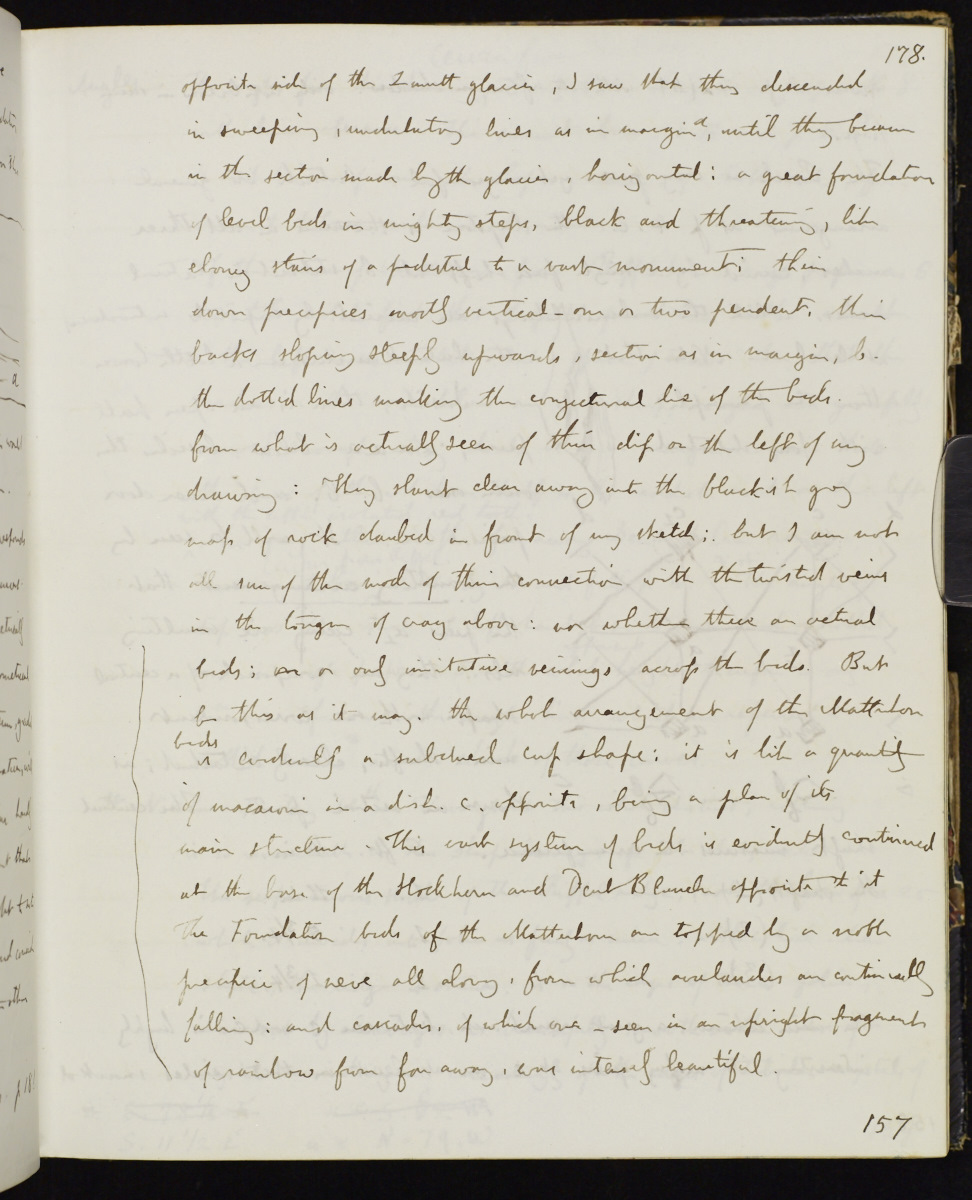 178.
opposite side of the Zmutt glacier, I saw that they descended
in sweeping, undulatory lines as in margin a, until they became
in the section made by the glacier, horizontal: a great foundation
of level beds in mighty steps, black and threatening, like
ebony stairs of a pedestal to a vast monument; their
down precipices mostly vertical - one or two pendent, their
backs sloping steeply upwards, section as in margin, b.
the dotted lines marking the conjectural lie of the beds.
from what is actually seen of their dip on the left of my
drawing: They slant clear away into the blackish gray
mass of rock daubed in front of my sketch;. but I am not
all sure of the mode of their connection with the twisted veins
in the tongue of crag above: nor whether these are actual
beds; or only imitative veinings across the beds. But
be this as it may. the whole arrangement of the Matterhorn
beds
is evidently a subdued cup shape; it is like a quantity
of macaroni in a dish. c. opposite, being a plan of its
main structure. This vast system of beds is evidently continued
at the base of the Stockhorn and Dent Blanche opposite to it
The Foundation beds of the Matterhorn are topped by a noble
precipice of neve all along, from which avalanches are continually
falling: and cascades, of which one - seen in an upright fragment
of rainbow from far away, was intensely beautiful.
157